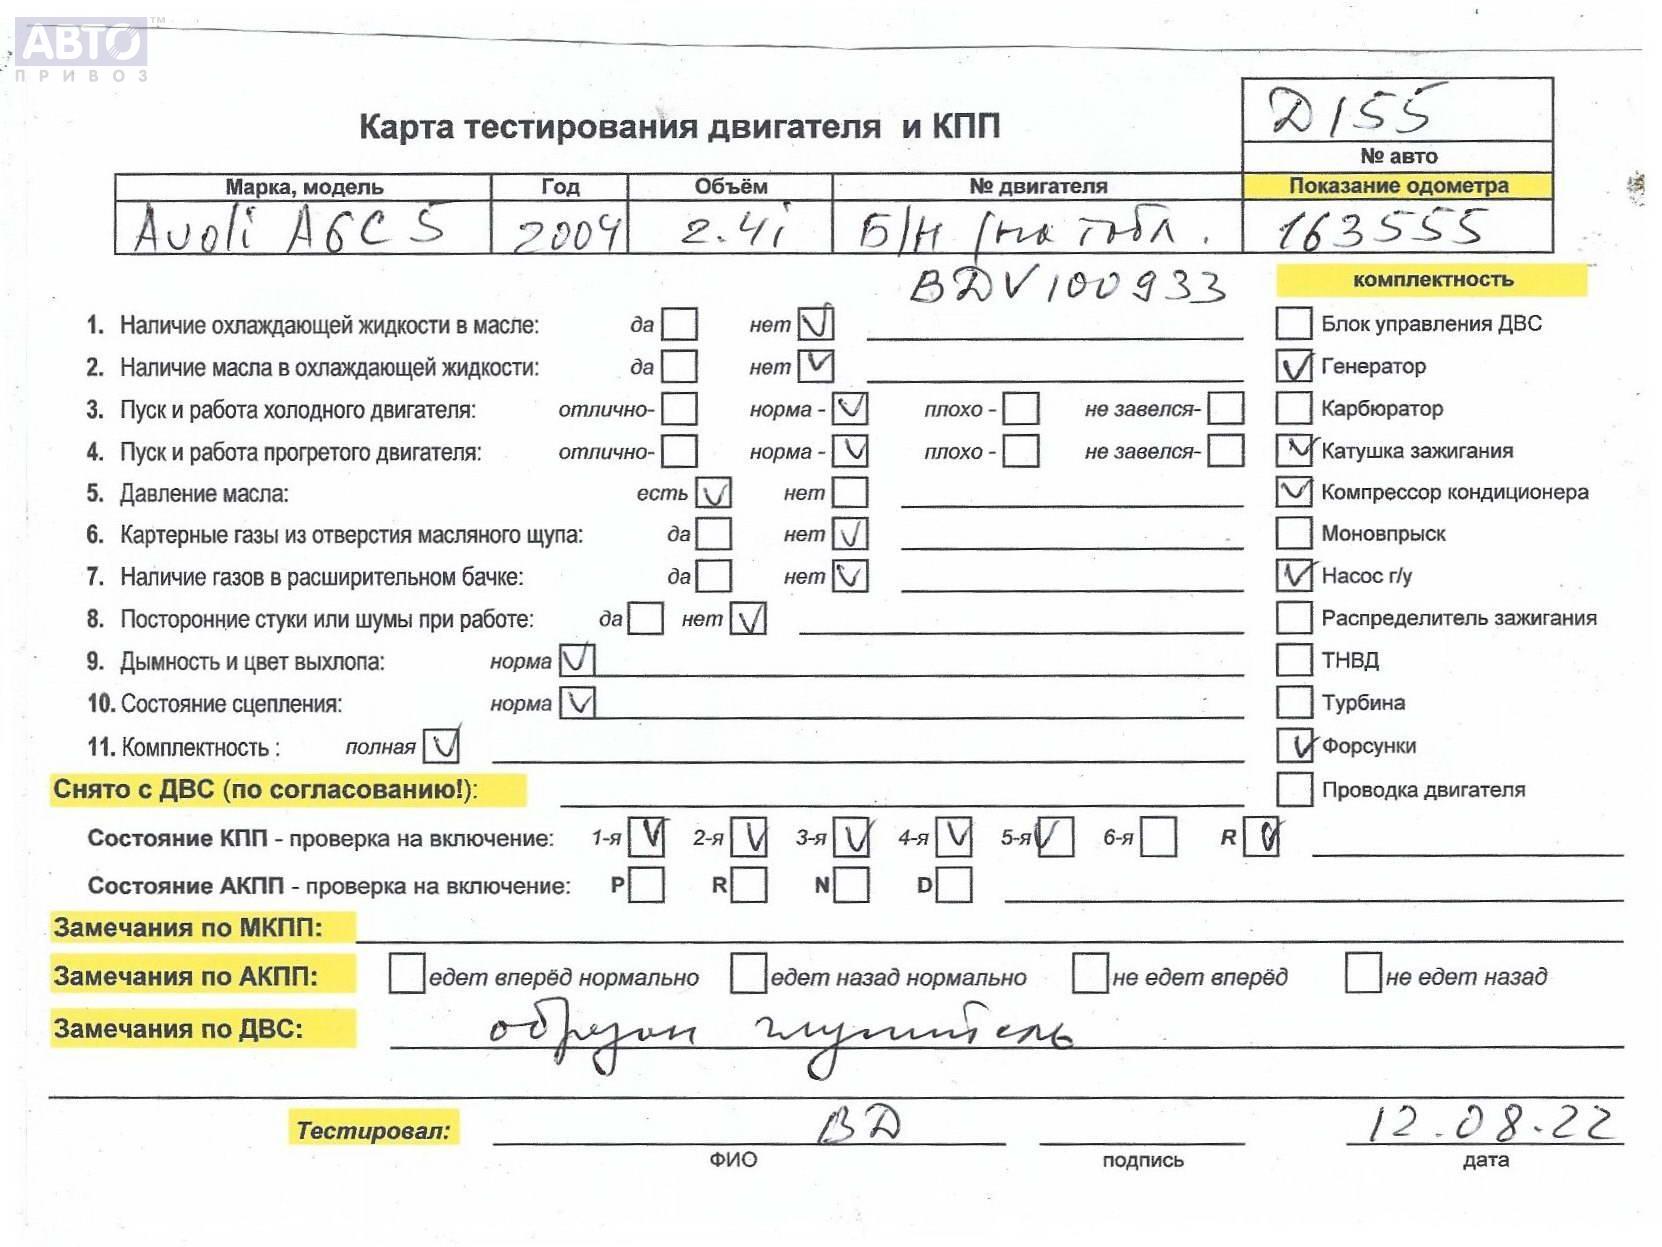 АВТО™
ПРИВОЗ
Карта тестирования двигателя и КПП
Д155
№ авто
Марка, модель Год Объём № двигателя Показание одометра
Audi A6C5 2004 2.4i Б/Н /на табл. 163555
BDV100933
комплектность
1. Наличие охлаждающей жидкости в масле: да нет Блок управления ДВС
2. Наличие масла в охлаждающей жидкости: да нет Генератор
3. Пуск и работа холодного двигателя: отлично- норма - плохо - не завелся- Карбюратор
4. Пуск и работа прогретого двигателя: отлично- норма - плохо - не завелся- Катушка зажигания
5. Давление масла: есть нет Компрессор кондиционера
6. Картерные газы из отверстия масляного щупа: да нет Моновпрыск
7. Наличие газов в расширительном бачке: да нет Насос г/у
8. Посторонние стуки или шумы при работе: да нет Распределитель зажигания
9. Дымность и цвет выхлопа: норма ТНВД
10. Состояние сцепления: норма Турбина
11. Комплектность : полная Форсунки
Снято с ДВС (по согласованию!): Проводка двигателя
Состояние КПП - проверка на включение: 1-я 2-я 3-я 4-я 5-я 6-я R
Состояние АКПП - проверка на включение: P R N D
Замечания по МКПП:
Замечания по АКПП: едет вперёд нормально едет назад нормально не едет вперёд не едет назад
Замечания по ДВС: обрезан глушитель
Тестировал: ВД 12.08.22
ФИО подпись дата